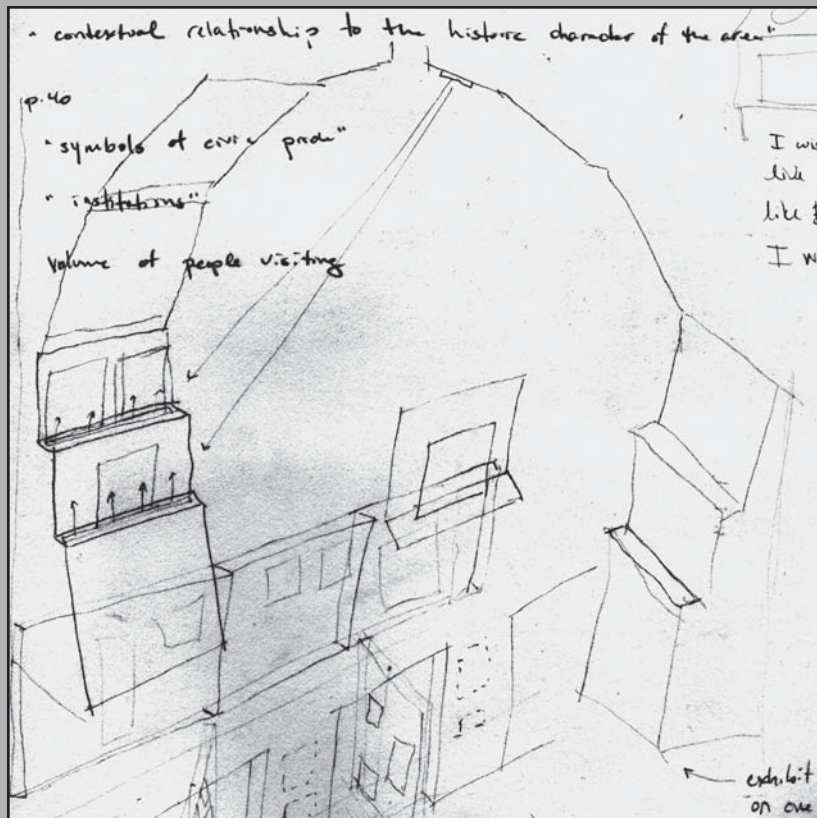 "contextual relationship to the historic character of the area"
p.40
"symbols of civic pride"
"institutions"
volume of people visiting
I
like
like
I
exhibit
on one